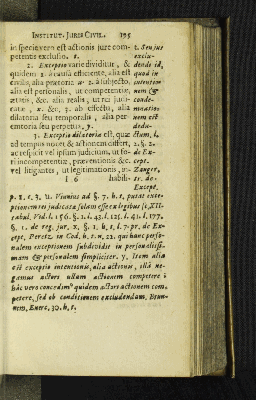 INSTITUT. JURIS CIVIL. 195
in specie vero est actionis jure com-
petentis exclusio. 1.
2. Exceptio varie dividitur, &
quidem 2. à causa efficiente, alia est
civilis, alia prætoria 2. à subjecto,
alia est personalis, ut competentiæ,
ætatis, &c. alia realis, ut rei judi-
catæ, &c. 3. ab effectu, alia
dilatoria seu temporalis, alia per-
emtoria seu perpetua. 3.
3. Exceptio dilatoria est, quæ
ad tempus nocet & actionem differt,
ac respicit vel ipsum judicium, ut fo-
ri incompetentiæ, præventionis &c.
vel litigantes, ut legitimationis, in-
I 6 habili-
1. Seu jus
exclu-
dendi id,
quod in
intentio-
nem &
conde-
mnatio-
nem est
dedu-
ctum, l.
2. §. 2.
de Ex-
cept.
Zanger.
tr. de
Except.
p. 1. c. 3. 2. Vinnius ad §. 7. h. t. putat exce-
ptionem rei judicatæ solam esse ex legibus
1. de reg. jur. x. §. 1. h. t. l. 7. pr. de Ex-
cept. Peretz. in Cod. h. t. n. 22. qui hanc perso-
nalem exceptionem subdividit in personalissi-
mam & personalem simpliciter. 3. Item alia
est exceptio intentionis, alia actionis, illâ ne-
gamus actori ullam actionem competere;
hâc vero concedimus quidem actori actionem com-
petere, sed ob conditionem excludendam,